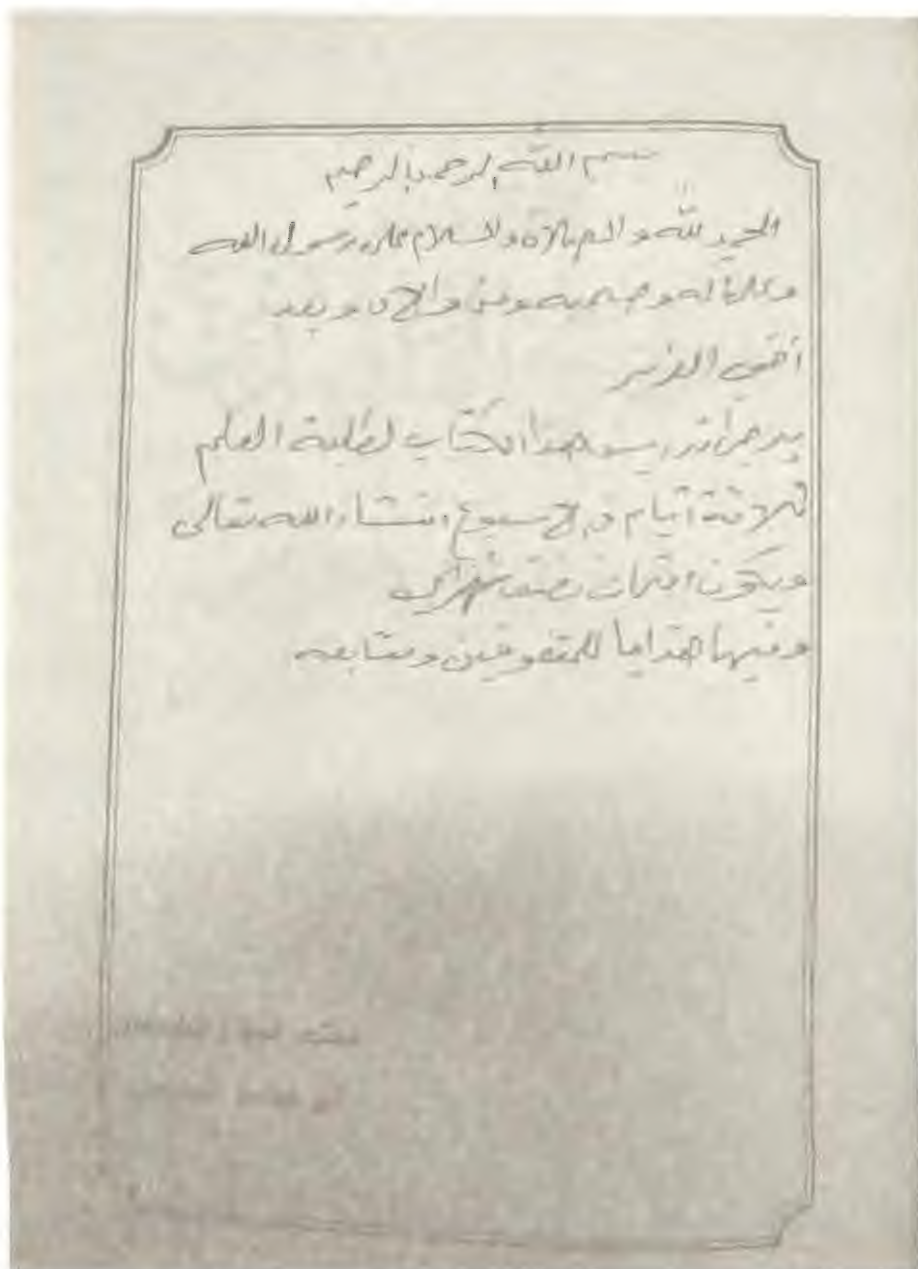 بسم الله الرحمن الرحيم
الحمد لله والصلاة والسلام على رسول الله
وعلى آله وصحبه ومن والاه وبعد
أخي
يرجى تدريس هذا الكتاب لطلبة العلم
ثلاثة أيام في الاسبوع انشاء الله تعالى
ويكون امتحان نصف شهرًا
وفيها هدايا للمتفوقين ومتابعه